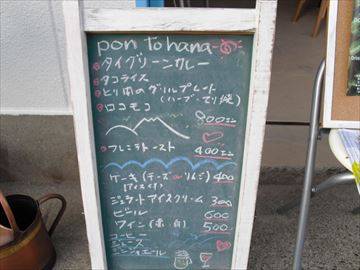 pon to hana
タイグリーンカレー
タコライス
とり肉のグリルプレート
(ハーブ・てり焼)
ロコモコ
800
フレンチトースト
400
ケーキ(チーズ or りんご) 400
(アイス付)
ジェラートアイスクリーム 300
ビール 600
ワイン(赤・白) 500
コーヒー
ジュース
ジンジャエール